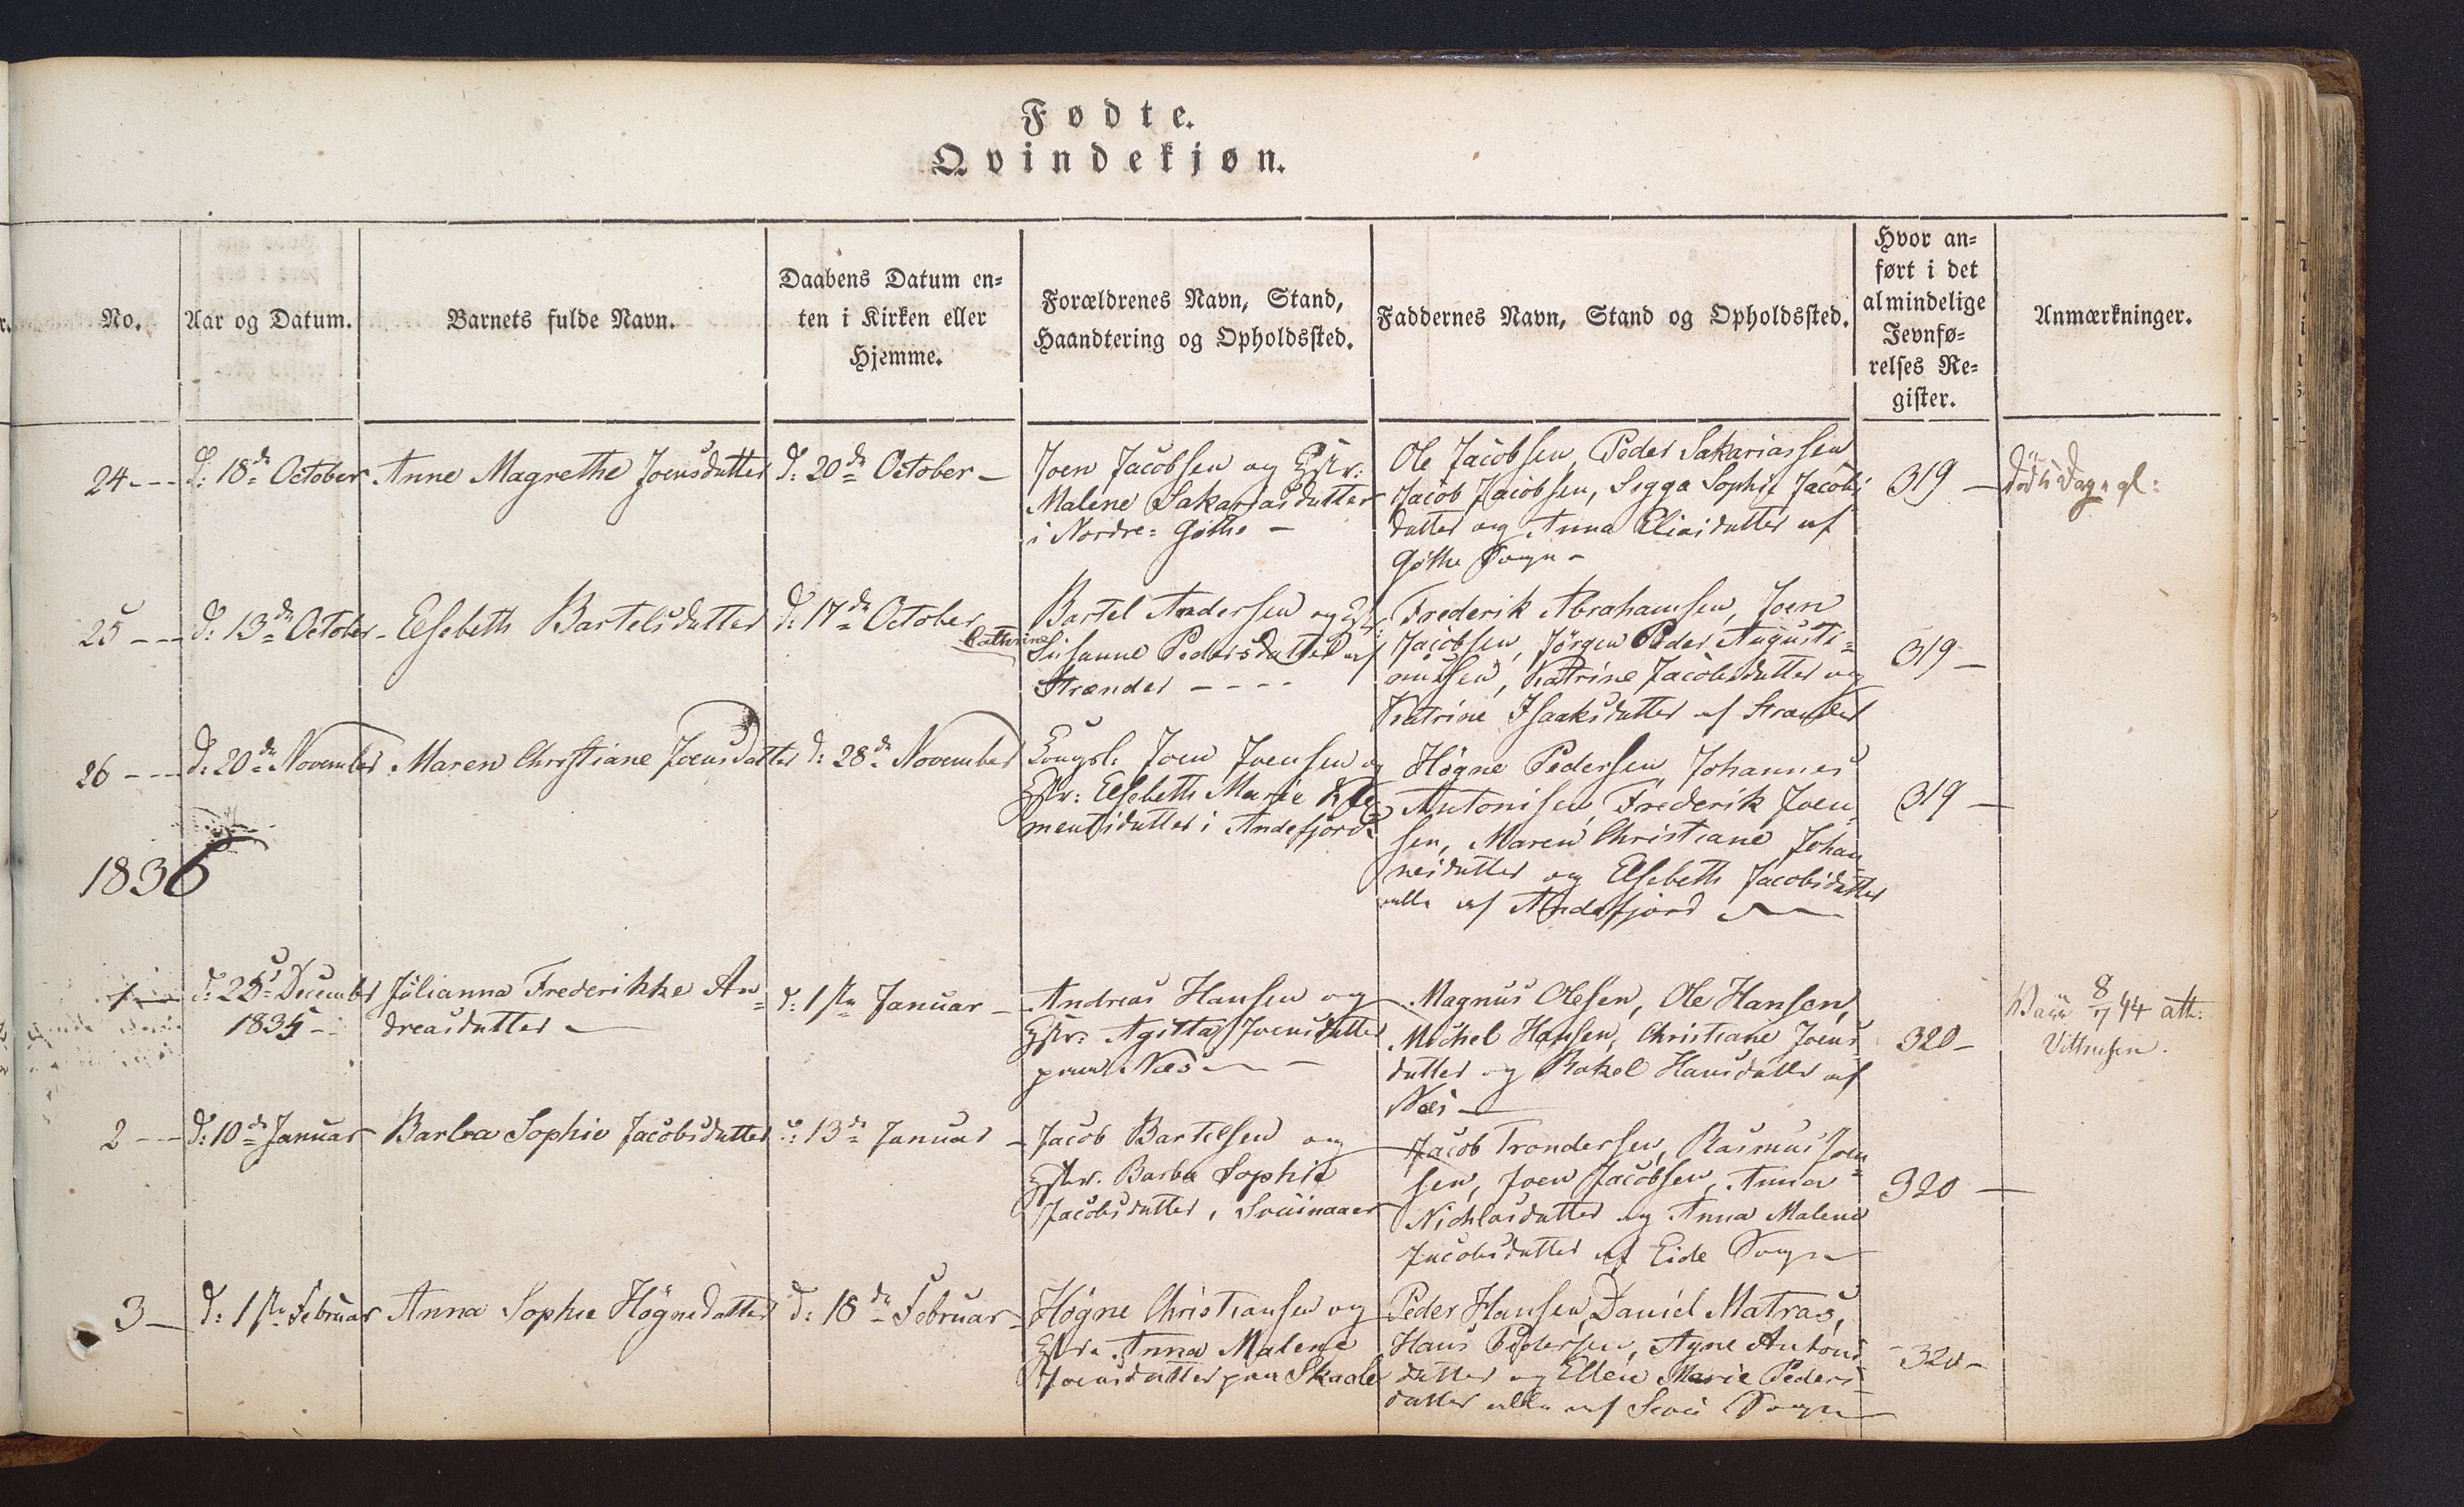 Fødte.
Qvindekjøn.
No.
Aar og Datum.
Barnets fulde Navn.
Daabens Datum en-
ten i Kirken eller
Hjemme.
Forældrenes Navn, Stand,
Haandtering og Opholdssted.
Faddernes Navn, Stand og Opholdssted.
Hvor an-
ført i det
almindelige
Jevnfø-
relses Re-
gister.
Anmærkninger.
24 - - -
d: 18de October
Anne Magrethe Joensdatter
d: 20de October -
Joen Jacobsen og Hstr:
Malene Sakariasdatter
i Nordre= Gøthe -
Ole Jacobsen, Peder Sakariassen
Jacob Jacobsen, Sigga Sophie Jacobs
datter og Anna Eliasdatter af
Gøthe Sogn -
319 -
Død Dage gl:
25 - - -
d: 13de October -
Elsebeth Bartelsdatter
d: 17de October
Bartel Andersen og Hst:
Cathrine
Susanne Pedersdatter af
Strænder - - - -
Frederik Abrahamsen, Joen
Jacobsen, Jørgen Peder Augusti=
nussen, Katrine Jacobsdatter og
Katrine Isaksdatter af Strænder
319 -
26 - - -
d: 20de November
Maren Christiane Joensdatter
d: 28de November
Kongsb. Joen Joensen og
Hstr: Elsebeth Marie Kle-
mentsdatter i Andefjord
Høgne Pedersen, Johannes
Antonisen, Frederik Joen
sen, Maren Christiane Johan
nesdatter og Elsebeth Jacobsdatter
alle af Andefjord
319 -
1836
1 -
d: 25 December
1835 -
Julianna Frederikke An=
dreasdatter -
d: 1ste Januar -
Andreas Hansen og
Hstr: Agitta Joensdatter
paa Næs -
Magnus Olesen, Ole Hansen,
Michel Hansen, Christiane Joens
datter og Rakel Hansdatter af
Næs -
320 -
Vacc 8/7 44 att:
2 - - -
d: 10de Januar
Barbra Sophie Jacobsdatter
d: 13de Januar -
Jacob Bartelsen og
Hstr. Barba Sophie
Jacobsdatter, Svuinaaer
Jacob Trondersen, Rasmus Joen=
sen, Joen Jacobsen, Anna
Nichlasdatter og Anna Malena
Jacobsdatter af Eide Sogn
320 -
3 -
d: 1ste Februar
Anna Sophie Høgnedatter
d: 18de Februar -
Høgne Christiansen og
Hstr. Anna Malene
Joensdatter paa Skaale
Peder Hansen, Daniel Matras,
Hans Pedersen, Agne Antons
datter og Ellen Marie Peders
datter alle af Sogn
320 -